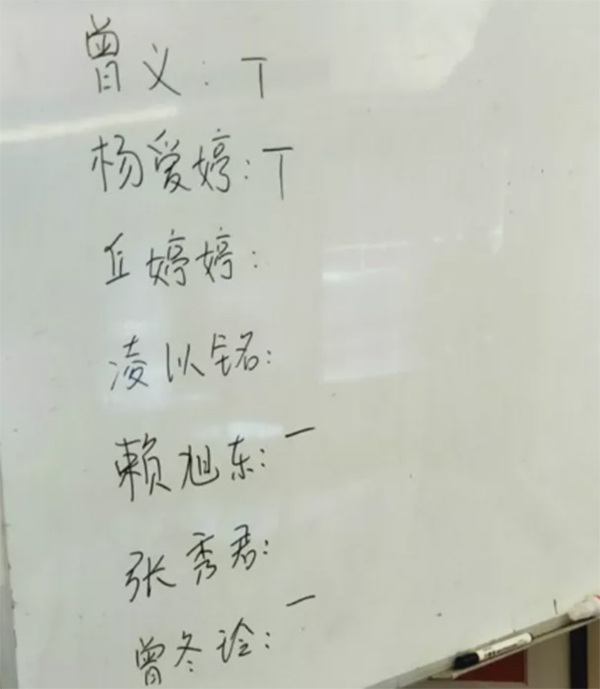 曾义：丅
杨爱婷：丅
丘婷婷：
凌以铭：
赖旭东：一
张秀君：
曾冬玲：一